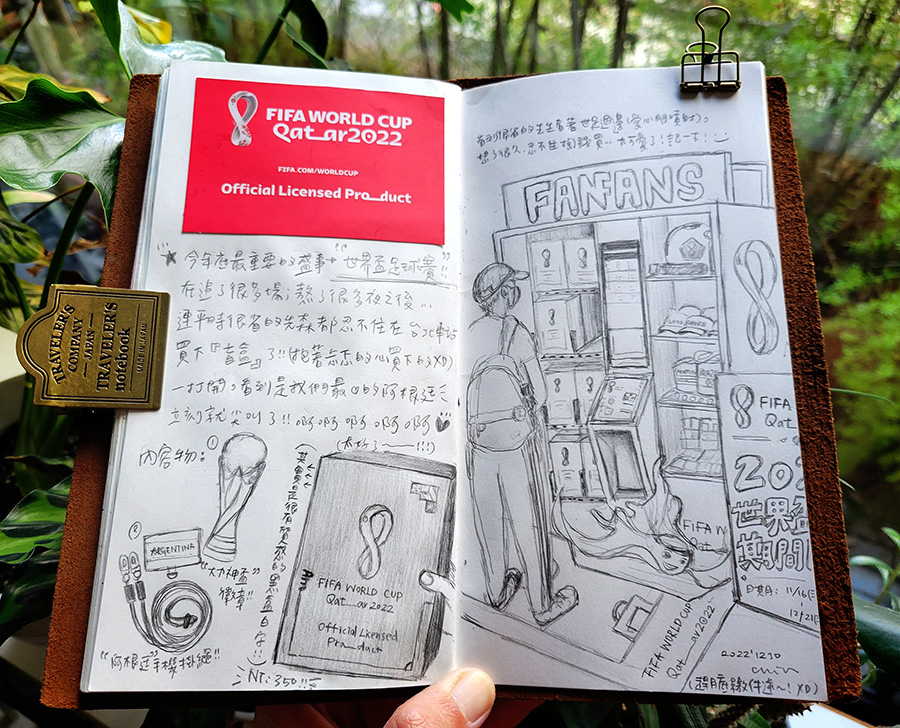 FIFA WORLD CUP
Qatar2022
FIFA.COM/WORLDCUP
Official Licensed Product
TRAVELER'S
COMPANY
JAPAN
TRAVELER'S
notebook
MADE IN JAPAN
★今年底最重要的盛事→"世界盃足球賽"!!
在追了很多場;熬了很多夜之後...
連平時很省的先森都忍不住在台北車站
買下『盲盒』了!!(抱著忐忑的心買下的XD)
一打開,看到是我們最心的阿根廷
立刻就尖叫了!!啊啊啊啊啊
(太好了~~!!!)
內容物:
①
②
ARGENTINA
"大力神盃"
徽章!!
"阿根廷"手機掛繩!!
其實是很有質感的黑盒白字!!
FIFA WORLD CUP
Qatar2022
Official Licensed
Product
NT:350!!
看到很省的先生看著世足週邊(愛心眼噴射)。
想了很久,忍不住相談買..太可愛了!記一下!
FANFANS
FIFA
Qat
202
世界盃
期間限
日期:11/16(三)
12/21(三)
FIFA W
Qat
FIFA WORLD CUP
Qatar2022
2022'1210
(趕月底繳件中~! XD)